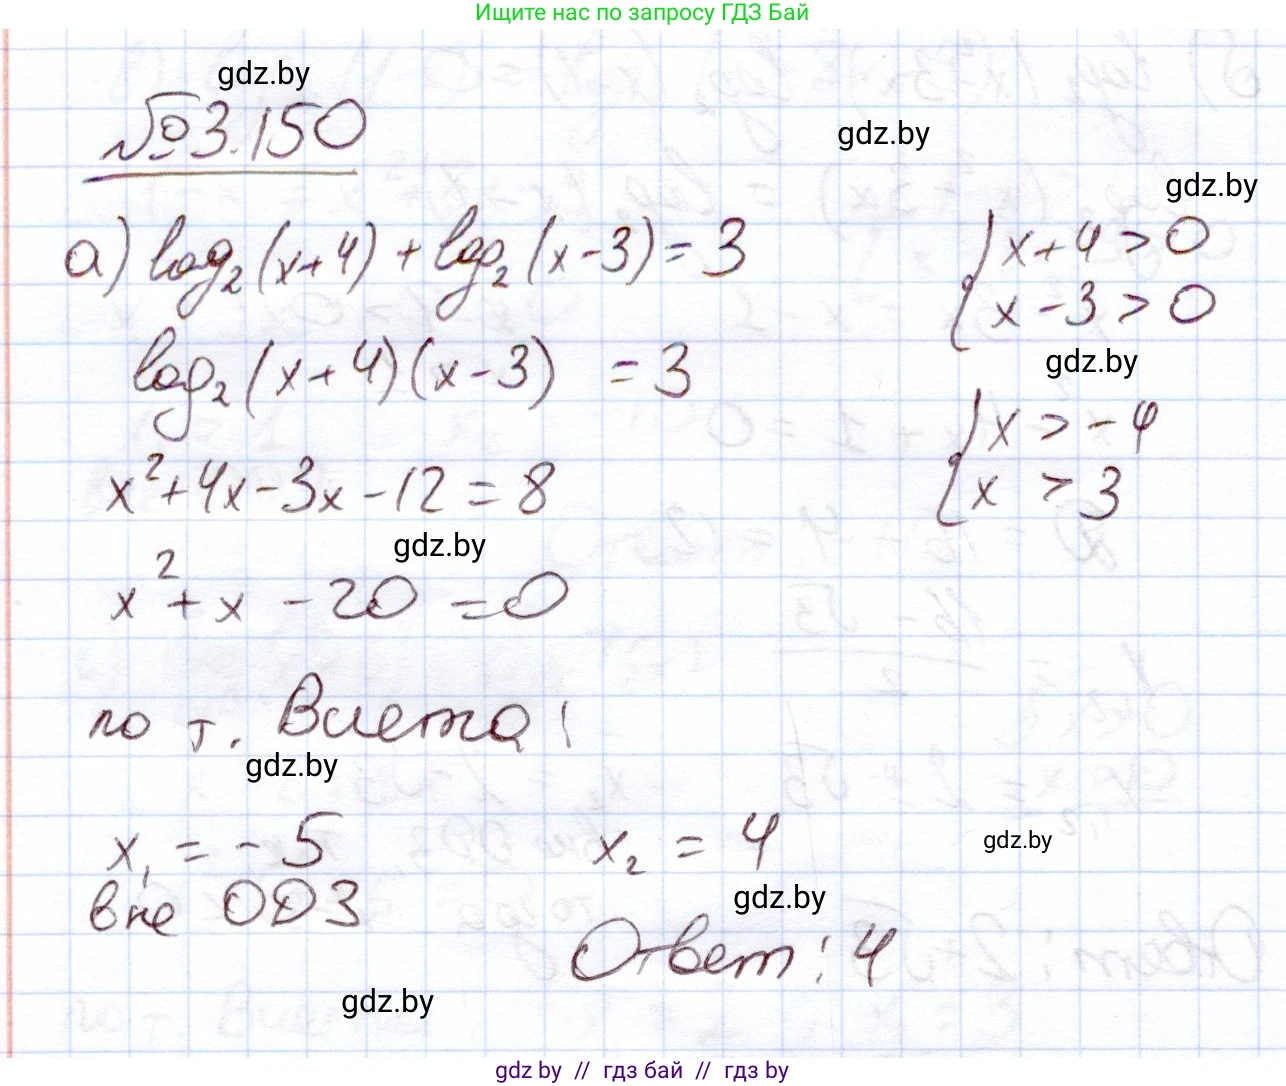 Ищите нас по запросу ГДЗ Бай
gdz.by
№3.150
gdz.by
gdz.by
а) log₂(x+4) + log₂(x-3) = 3
{ x+4 > 0
x-3 > 0
gdz.by
log₂(x+4)(x-3) = 3
{ x > -4
x > 3
x²+4x-3x-12=8
gdz.by
x²+x-20=0
по т. Виета:
gdz.by
x₁ = -5
x₂ = 4
gdz.by
вне ОДЗ
gdz.by
Ответ: 4
gdz.by
gdz by // гдз бай // гдз by